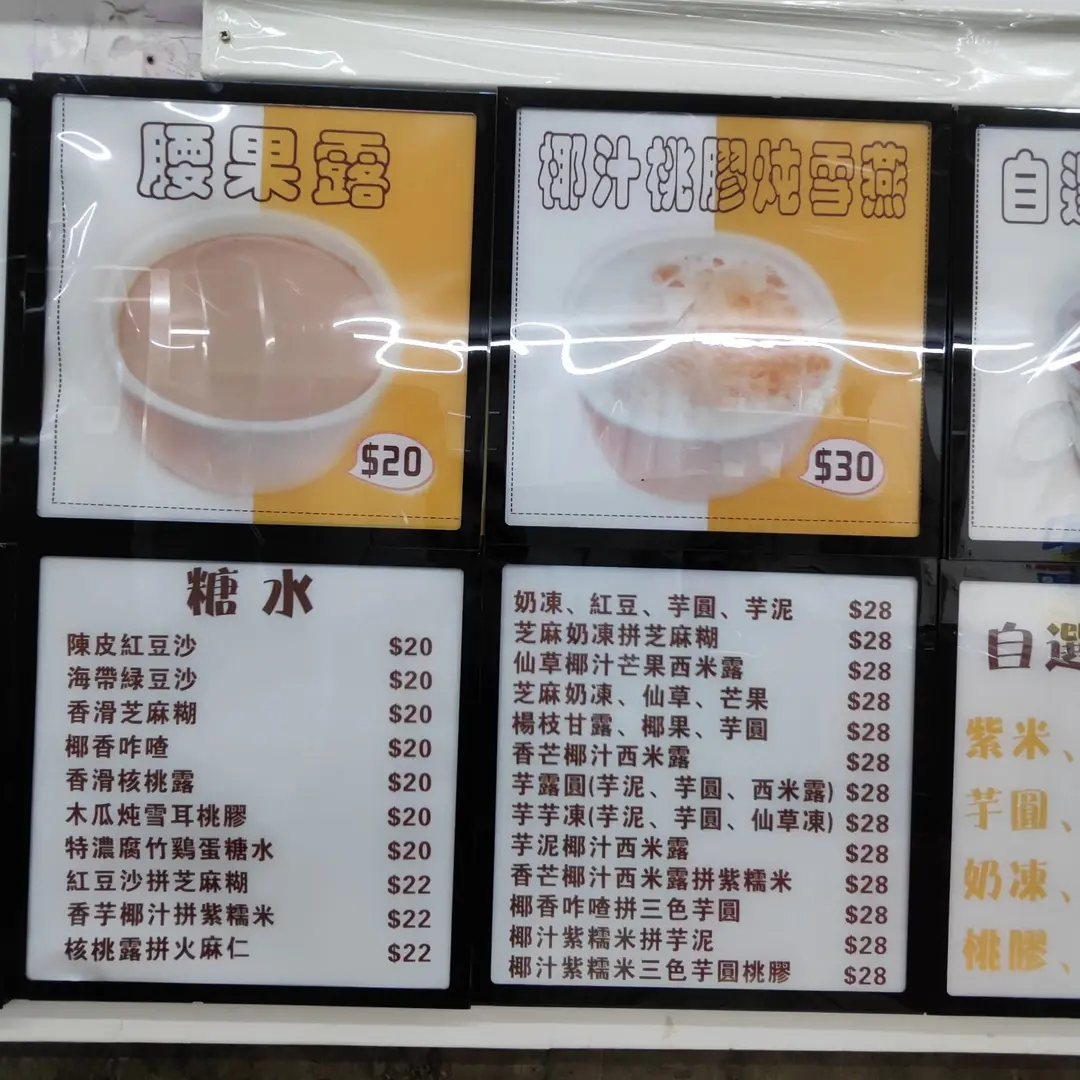 腰果露
$20
椰汁桃膠炖雪燕
$30
自選
糖水
陳皮紅豆沙 $20
海帶緑豆沙 $20
香滑芝麻糊 $20
椰香咋喳 $20
香滑核桃露 $20
木瓜炖雪耳桃膠 $20
特濃腐竹鷄蛋糖水 $20
紅豆沙拼芝麻糊 $22
香芋椰汁拼紫糯米 $22
核桃露拼火麻仁 $22
奶凍、紅豆、芋圓、芋泥 $28
芝麻奶凍拼芝麻糊 $28
仙草椰汁芒果西米露 $28
芝麻奶凍、仙草、芒果 $28
楊枝甘露、椰果、芋圓 $28
香芒椰汁西米露 $28
芋露圓(芋泥、芋圓、西米露) $28
芋芋凍(芋泥、芋圓、仙草凍) $28
芋泥椰汁西米露 $28
香芒椰汁西米露拼紫糯米 $28
椰香咋喳拼三色芋圓 $28
椰汁紫糯米拼芋泥 $28
椰汁紫糯米三色芋圓桃膠 $28
自選
紫米、
芋圓、
奶凍、
桃膠、